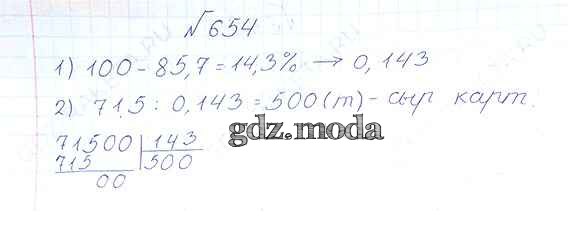 №654
1) 100 - 85,7 = 14,3% → 0,143
2) 71,5 : 0,143 = 500 (т) - сыр карт.
gdz.moda
71500 | 143
715 | 500
00